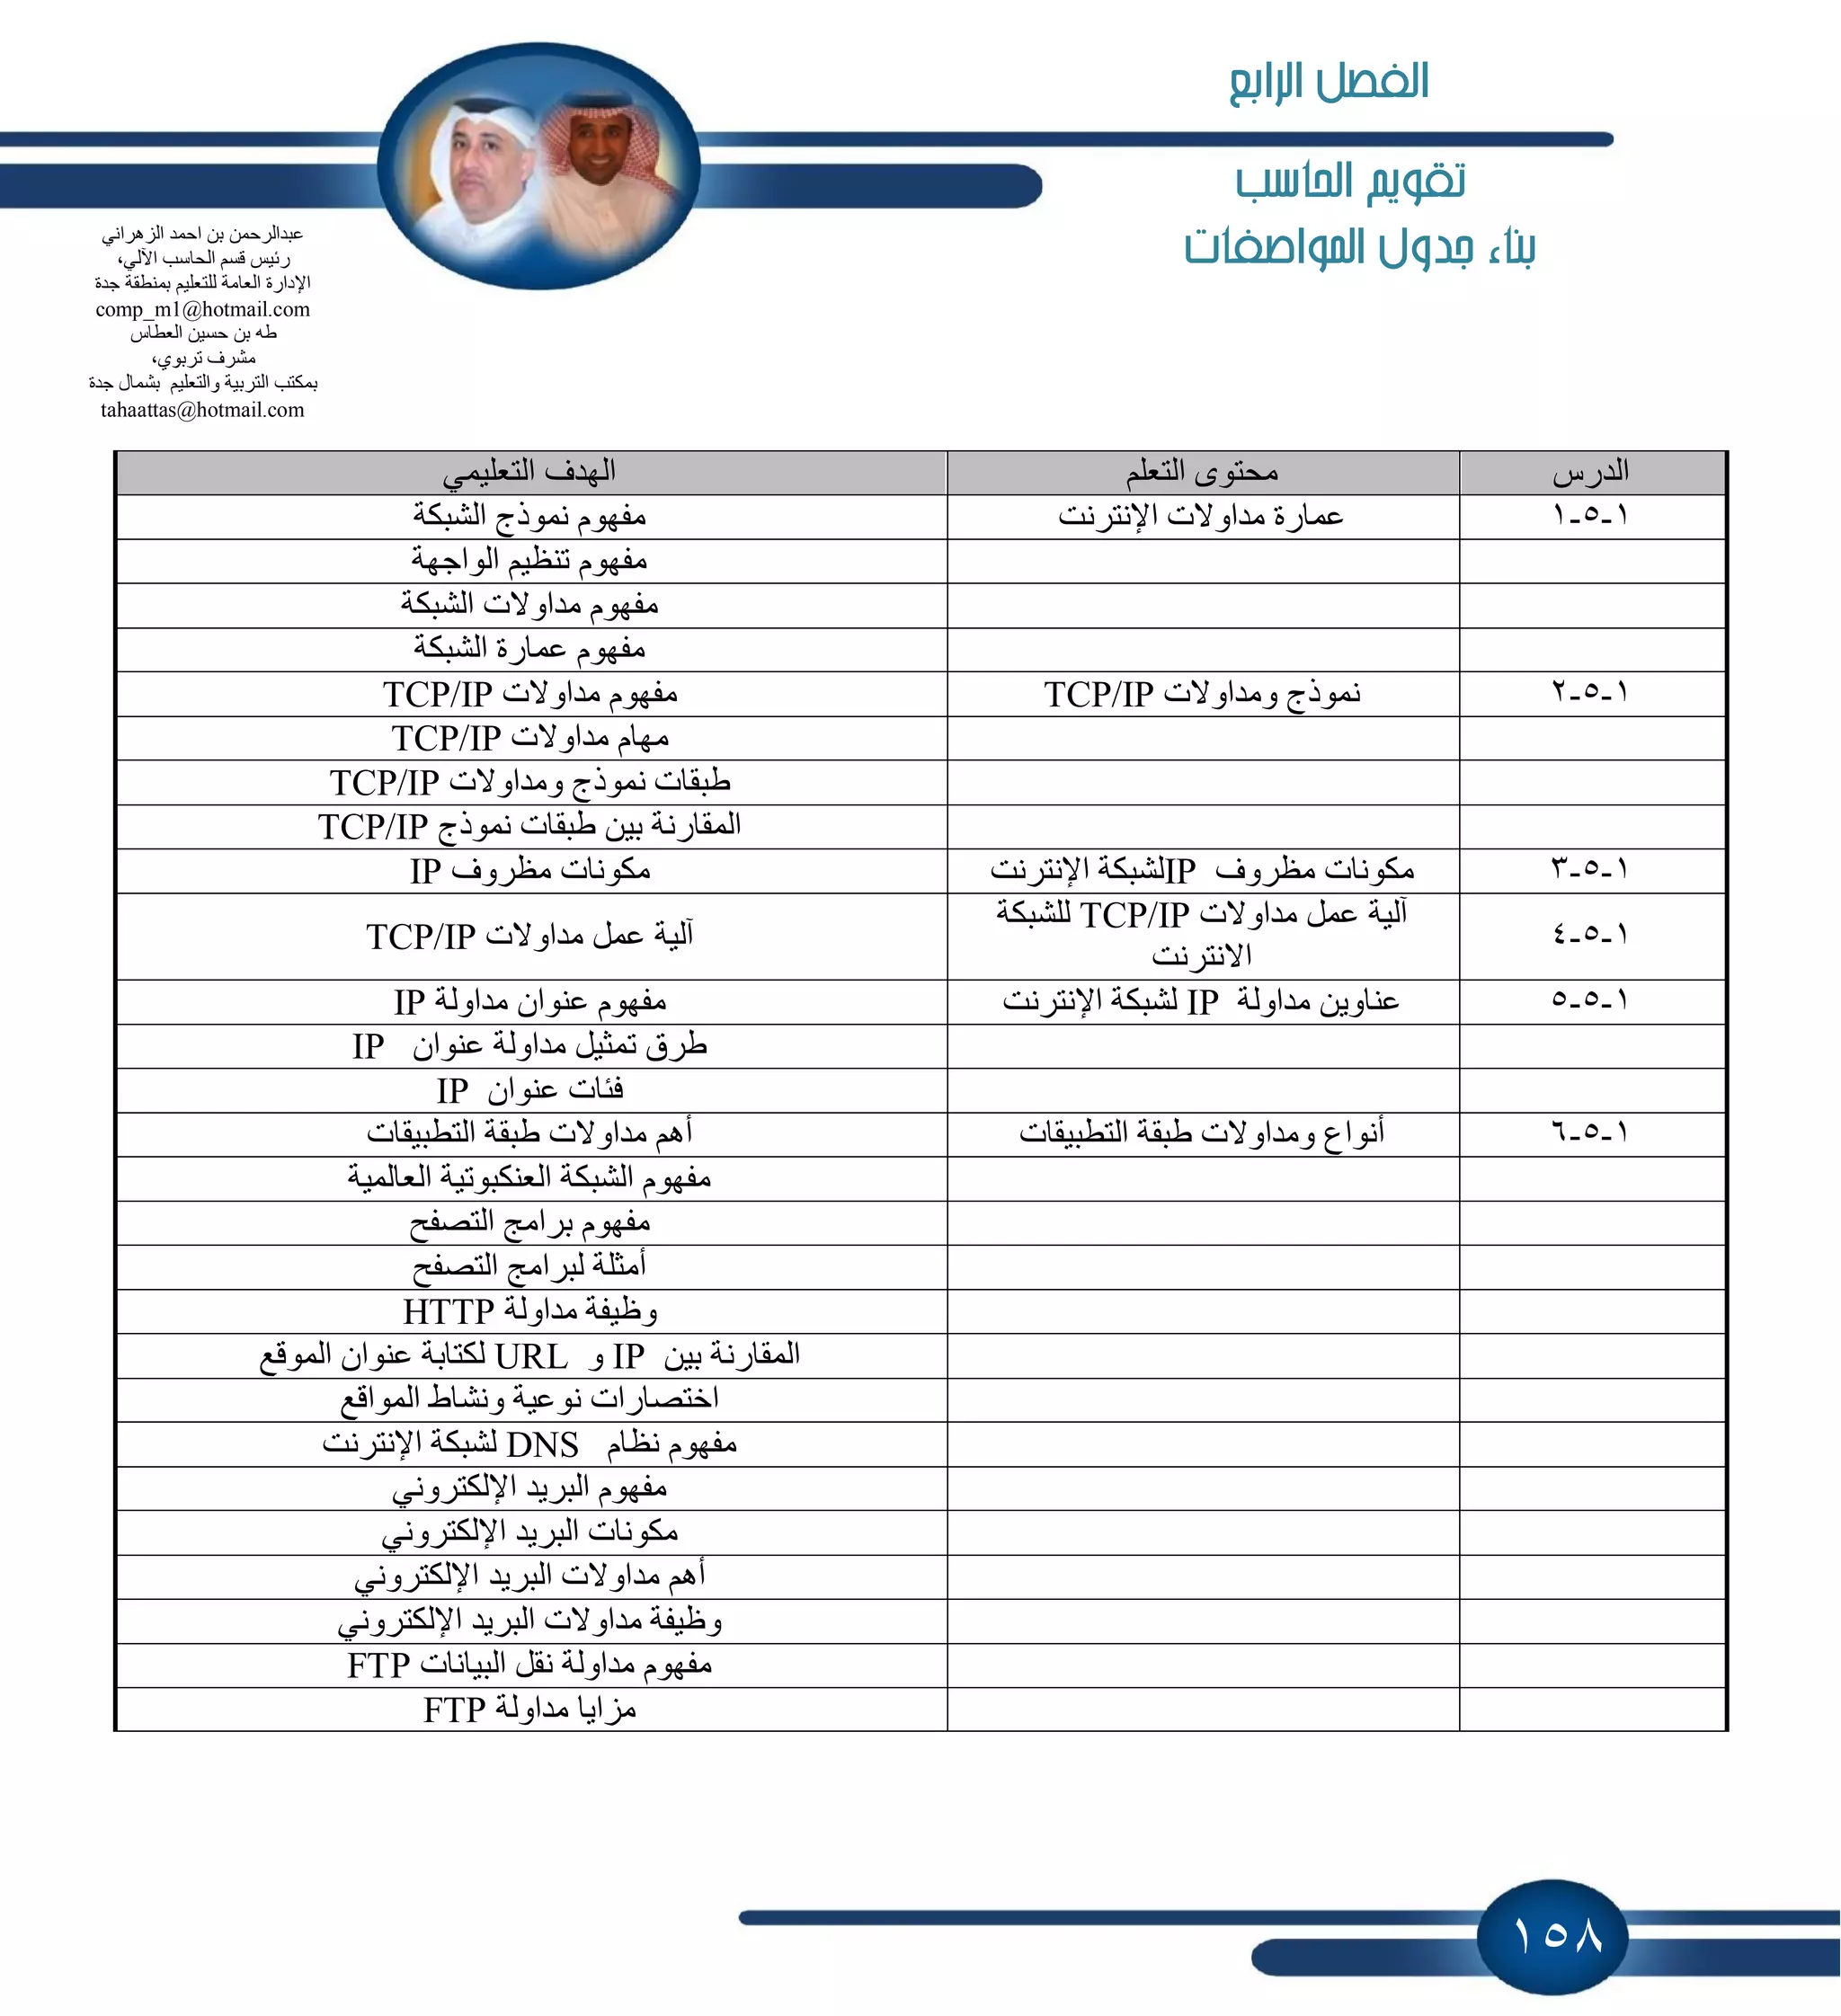 الفصل الرابع
تقويم الحاسب
بناء جدول المواصفات
عبدالرحمن بن احمد الزهراني
رئيس قسم الحاسب الآلي،
الإدارة العامة للتعليم بمنطقة جدة
comp_m1@hotmail.com
طه بن حسين العطاس
مشرف تربوي،
بمكتب التربية والتعليم بشمال جدة
tahaattas@hotmail.com
الدرس محتوى التعلم الهدف التعليمي
١-٥-١ عمارة مداولات الإنترنت مفهوم نموذج الشبكة
مفهوم تنظيم الواجهة
مفهوم مداولات الشبكة
مفهوم عمارة الشبكة
١-٥-٢ نموذج ومداولات TCP/IP مفهوم مداولات TCP/IP
مهام مداولات TCP/IP
طبقات نموذج ومداولات TCP/IP
المقارنة بين طبقات نموذج TCP/IP
١-٥-٣ مكونات مظروف IPلشبكة الإنترنت مكونات مظروف IP
١-٥-٤ آلية عمل مداولات TCP/IP للشبكة
الانترنت آلية عمل مداولات TCP/IP
١-٥-٥ عناوين مداولة IP لشبكة الإنترنت مفهوم عنوان مداولة IP
طرق تمثيل مداولة عنوان IP
فئات عنوان IP
١-٥-٦ أنواع ومداولات طبقة التطبيقات أهم مداولات طبقة التطبيقات
مفهوم الشبكة العنكبوتية العالمية
مفهوم برامج التصفح
أمثلة لبرامج التصفح
وظيفة مداولة HTTP
المقارنة بين IP و URL لكتابة عنوان الموقع
اختصارات نوعية ونشاط المواقع
مفهوم نظام DNS لشبكة الإنترنت
مفهوم البريد الإلكتروني
مكونات البريد الإلكتروني
أهم مداولات البريد الإلكتروني
وظيفة مداولات البريد الإلكتروني
مفهوم مداولة نقل البيانات FTP
مزايا مداولة FTP
١٥٨